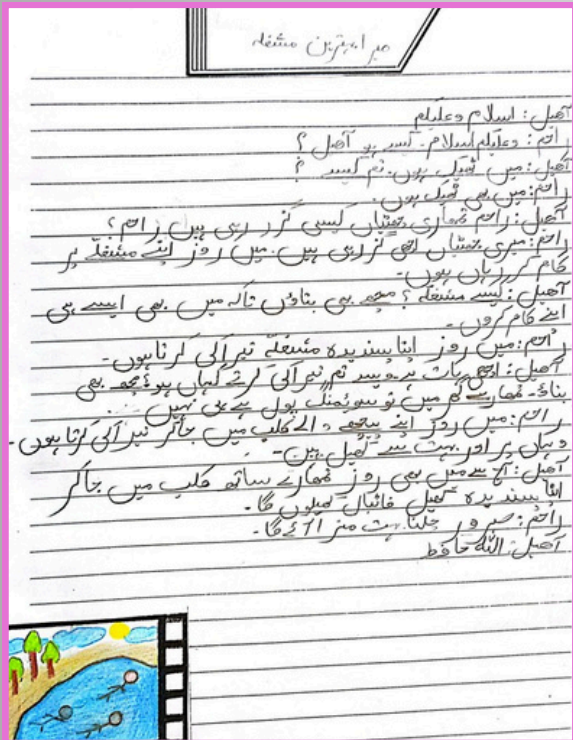 میرا بہترین مشغلہ
آھیل: اسلام وعلیکم
راحم: وعلیکم اسلام۔ کیسے ہو آھیل ؟
آھیل: میں ٹھیک ہوں۔ تم کیسے ؟
راحم: میں بھی ٹھیک ہوں۔
آھیل: راحم تمھاری چھٹیاں کیسی گزر رہی ہیں راحم؟
راحم: میری چھٹیاں اچھی گزر رہی ہیں۔ میں روز اپنے مشغلے پر
کام کر رہاں ہوں۔
آھیل: کیسے مشغلہ ؟ مجھے بھی بتاؤں تاکہ میں بھی ایسے ہی
اپنے کام کروں۔
راحم: میں روز اپنا پسندیدہ مشغلہ تیراکی کرتا ہوں۔
آھیل: اچھی بات ہے ویسے تم تیراکی کرتے کہاں ہو؟ مجھے بھی
بتاؤ۔ تمھارے گھر میں تو سویمنگ پول ہے ہی نہیں۔
راحم: میں روز اپنے پیچھے والے کلب میں جاکر تیراکی کرتا ہوں۔
وہاں پر اور بہت سے کھیل ہیں۔
آھیل: آج سے میں بھی روز تمھارے ساتھ کلب میں جاکر
اپنا پسندیدہ کھیل فٹبال کھیلوں گا۔
راحم: ضرور چلنا بہت مزا آئے گا۔
آھیل: اللہ حافظ